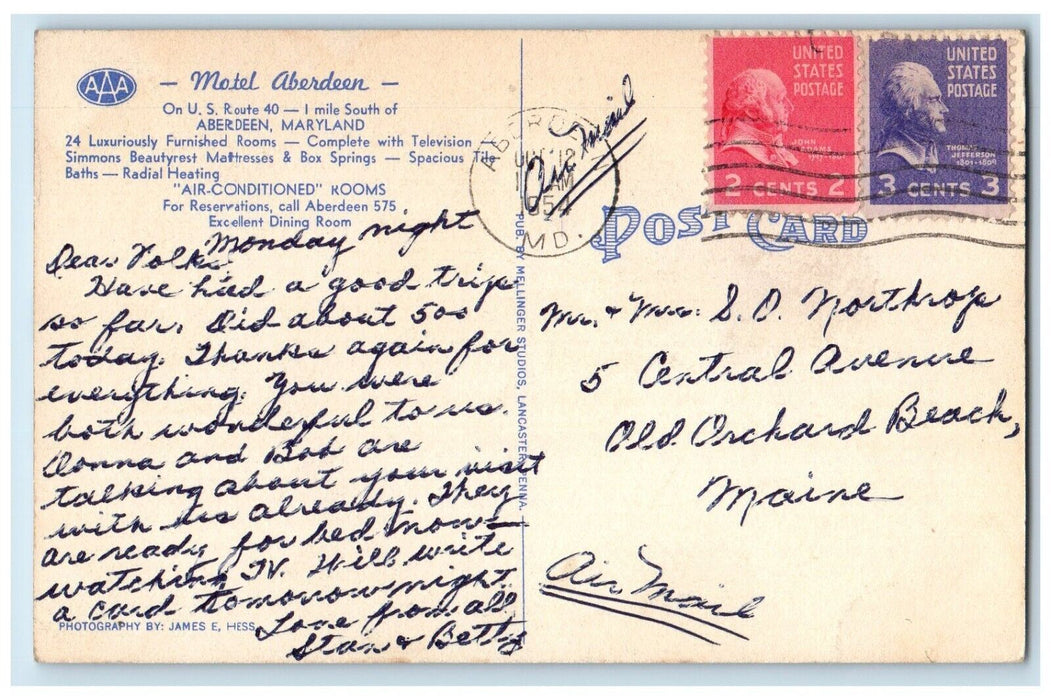 AAA
— Motel Aberdeen —
On U. S. Route 40 — 1 mile South of
ABERDEEN, MARYLAND
24 Luxuriously Furnished Rooms — Complete with Television
Simmons Beautyrest Mattresses & Box Springs — Spacious Tile
Baths — Radial Heating
"AIR-CONDITIONED" ROOMS
For Reservations, call Aberdeen 575
Excellent Dining Room
Monday night
Dear Folks,
Have had a good trip
so far. Did about 500
today. Thanks again for
everything. You were
both wonderful to us.
Donna and Bob are
talking about your visit
with us already. They
are ready for bed now –
watching TV. Will write
a card tomorrow night.
Love from all
Stan & Betty
PHOTOGRAPHY BY: JAMES E, HESS
PUB BY MELLINGER STUDIOS, LANCASTER, PENNA.
Air Mail
AM
1954
MD.
UNITED
STATES
POSTAGE
JOHN
ADAMS
2 CENTS 2
UNITED
STATES
POSTAGE
THOMAS
JEFFERSON
1801-1809
3 CENTS 3
POST CARD
Mr. & Mrs. S. O. Northrop
5 Central Avenue
Old Orchard Beach,
Maine
Air Mail